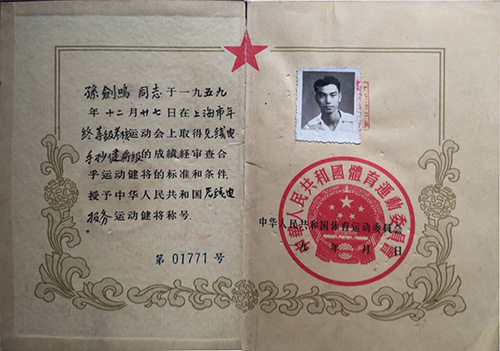 孫劍鳴 同志于一九五九
年十二月廿七日在上海市年
终等级考核运动会上取得无线电
手抄健将级的成绩经审查合
乎运动健将的标准和条件,
授予中华人民共和国无线电
报务运动健将称号.
第 01771 号
中华人民共和國體育運動委員會
中华人民共和国体育运动委员会
年 月 日